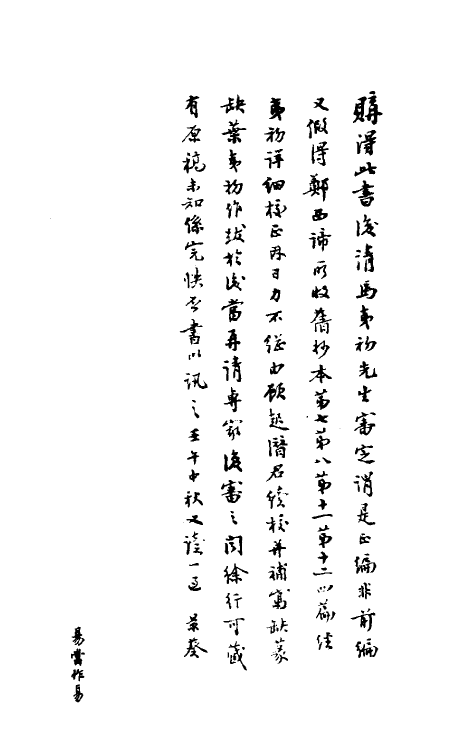 購得此書後請馬夷初先生審定謂是正編非前編
又假得鄭西諦所收舊抄本第七第八第十一第十二四篇經
夷初詳細校正因目力不繼由顧起潛君續校并補寫缺葉
缺葉夷初作跋於後當再請專家復審之聞徐行可藏
有原稿未知係完帙否書以訊之壬午中秋又讀一過 景葵
易當作易